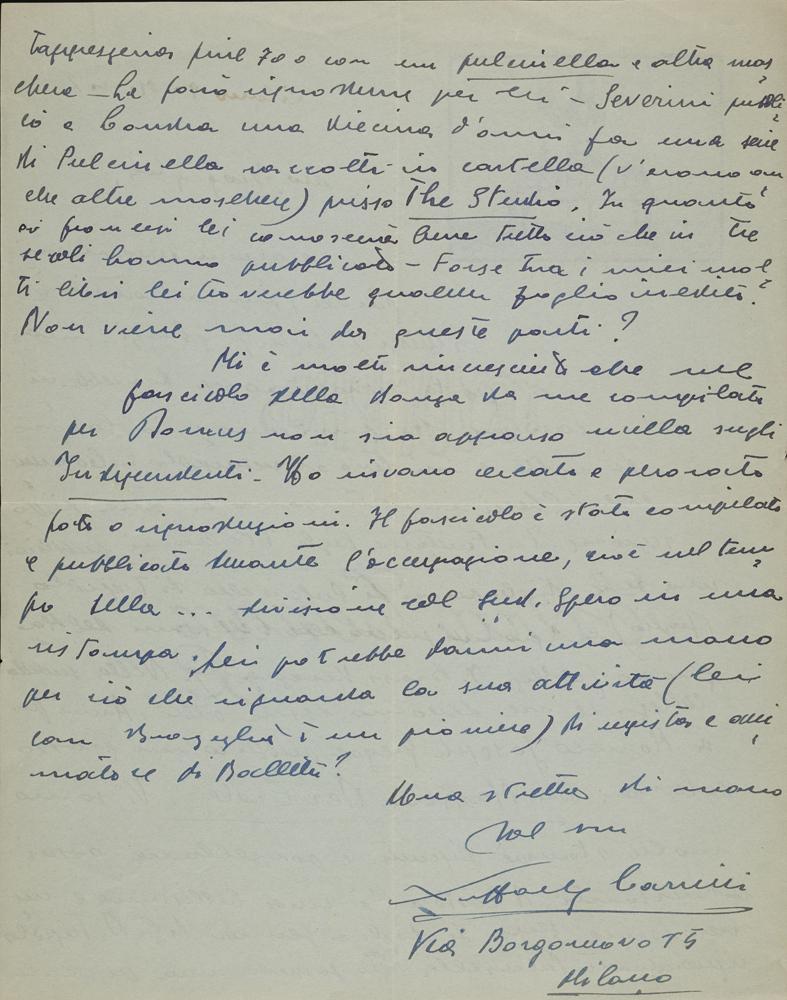 tappezzeria fine 700 con un pulcinella e altre mas
chere – La farò riprodurre per lei – Severini pubbli
cò a Londra una diecina d'anni fa una serie
di Pulcinella raccolti in cartella (v'erano an
che altre maschere) presso The Studio. In quanto
ai francesi lei conoscerà bene tutto ciò che in tre
secoli hanno pubblicato – Forse tra i miei mol
ti libri lei troverebbe qualche foglio inedito.
Non viene mai da queste parti?
Mi è molto rincresciuto che nel
fascicolo della danza da me compilato
per Domus non sia apparso nulla sugli
Indipendenti – Ho invano cercato e pregato
foto o riproduzioni. Il fascicolo è stato compilato
e pubblicato durante l'occupazione, cioè nel tem
po della ... divisione col Sud. Spero in una
ristampa. Lei potrebbe darmi una mano
per ciò che riguarda la sua attività (lei
con Bragaglia è un pioniere) di regista e ani
matore di Balletti?
Una stretta di mano
dal suo
Raffaele Carrieri
Via Borgonuovo 15
Milano